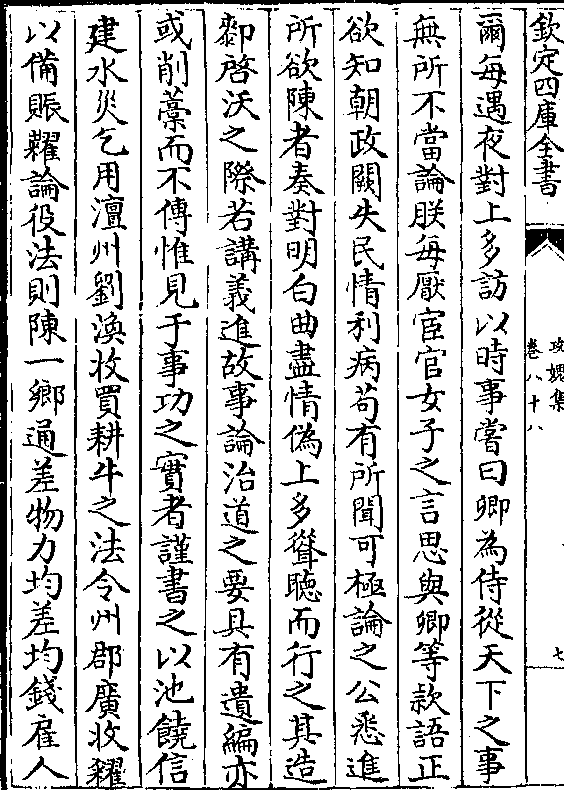 欽定四庫全書
攻媿集
卷八十八
七
爾每遇夜對上多訪以時事嘗曰卿為侍從天下之事
無所不當論朕每厭宦官女子之言思與卿等款語正
欲知朝政闕失民情利病苟有所聞可極論之公悉進
所欲陳者奏對明白曲盡情偽上多聳聽而行之其造
䣛啓沃之際若講義進故事論治道之要具有遺編亦
或削藁而不傳惟見于事功之實者謹書之以池饒信
建水災乞用澶州劉渙收買耕牛之法令州郡廣收糴
以備賑糶論役法則陳一鄉通差物力均差均錢雇人